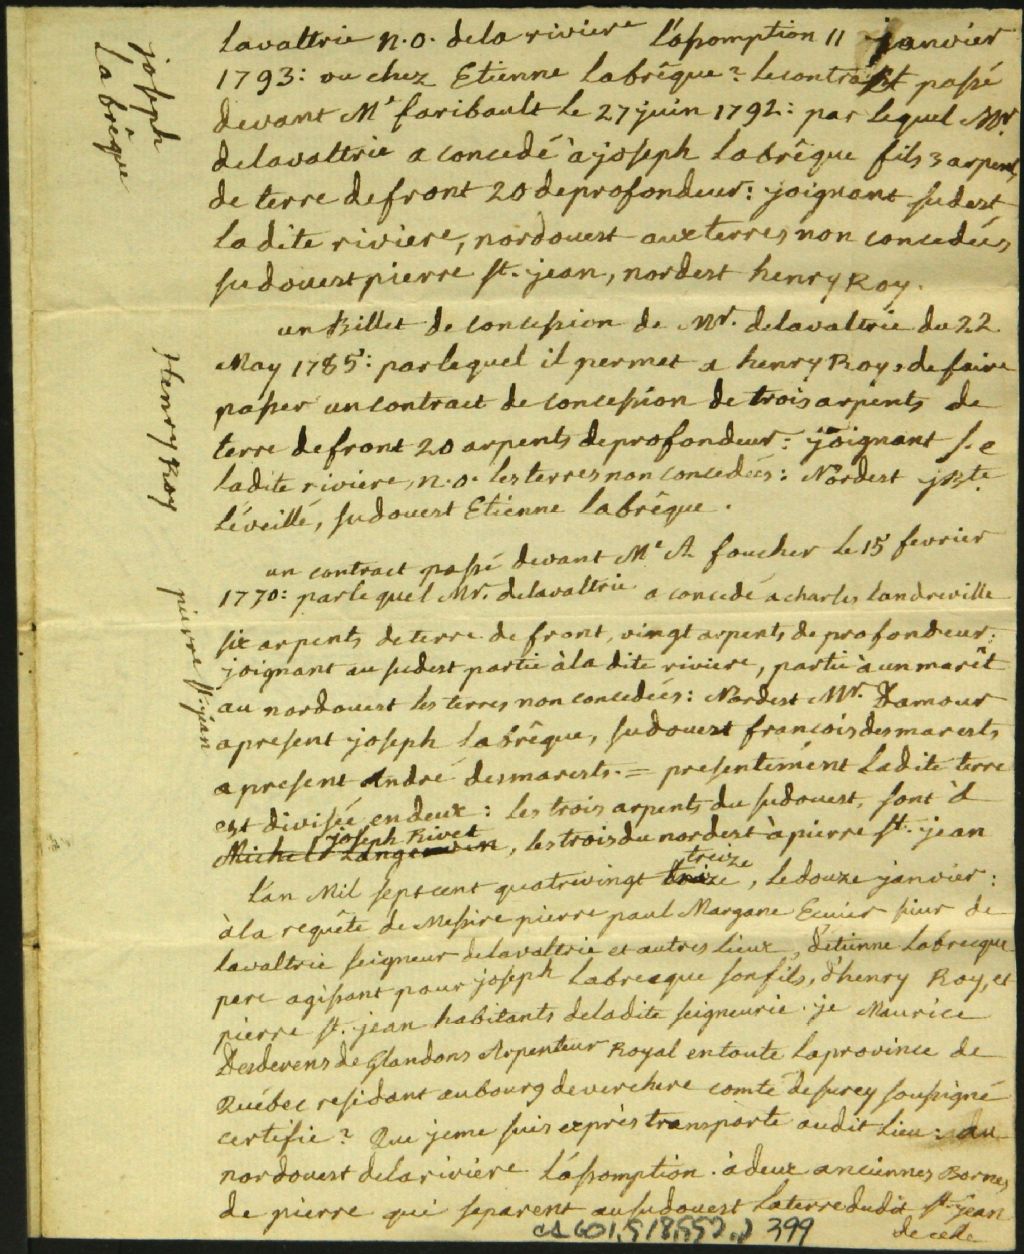 lavaltrie n.o. de la riviere L'assomption 11 janvier
1793: vu chez Etienne Labrêque? le contract passé
devant Me faribault le 27 juin 1792: par lequel Mr.
delavaltrie a concedé à joseph Labrêque fils 3 arpents
de terre de front 20 de profondeur: joignant sudest
la dite riviere, nordouest aux terres non concedées
sudouest pierre st. jean, nordest henry Roy.
un Billet de concession de Mr. delavaltrie du 22
May 1785: par lequel il permet a henry Roy, de faire
passer un contract de concession de trois arpents de
terre de front 20 arpents de profondeur: joignant s.e
ladite riviere, n.o. les terres non concedées: Nordest jBte.
Léveillé, sudouest Etienne labrêque.
un contract passé devant Me A. foucher le 15 fevrier
1770: par lequel Mr. delavaltrie a concedé a charles Landreville
six arpents de terre de front, vingt arpents de profondeur:
joignant au sudest partie à la dite riviere, partie à un marêt
au nordouest les terres non concedées: Nordest Mr. Damour
apresent joseph Labrêque, sudouest francois desmarests
apresent André desmarests. = presentement Ladite terre
est divisée en deux: les trois arpents du sudouest, sont à
joseph Rivet
Michel Langewin, les trois du nordest à pierre st. jean
treize
L'an Mil sept cent quatrevingt treize, le douze janvier:
à la requête de Messire pierre paul Margane Ecuier sieur de
lavaltrie seigneur delavaltrie et autres Lieux, d'etienne Labrecque
pere agissant pour joseph Labrecque son fils, d'henry Roy, et
pierre st. jean habitants de ladite seigneurie. je Maurice
Desdevens de Glandons Arpenteur Royal en toute la province de
Québec residant au bourg de verchere comté de surey soussigné
certifie? Que je me suis exprès transporte audit Lieu: au
nordouest de la riviere L'assomption. à deux anciennes Bornes
de pierre qui separent au sudouest la terre dudit st. jean
de celle
joseph
Labrêque
Henry Roy
pierre st. jean
399